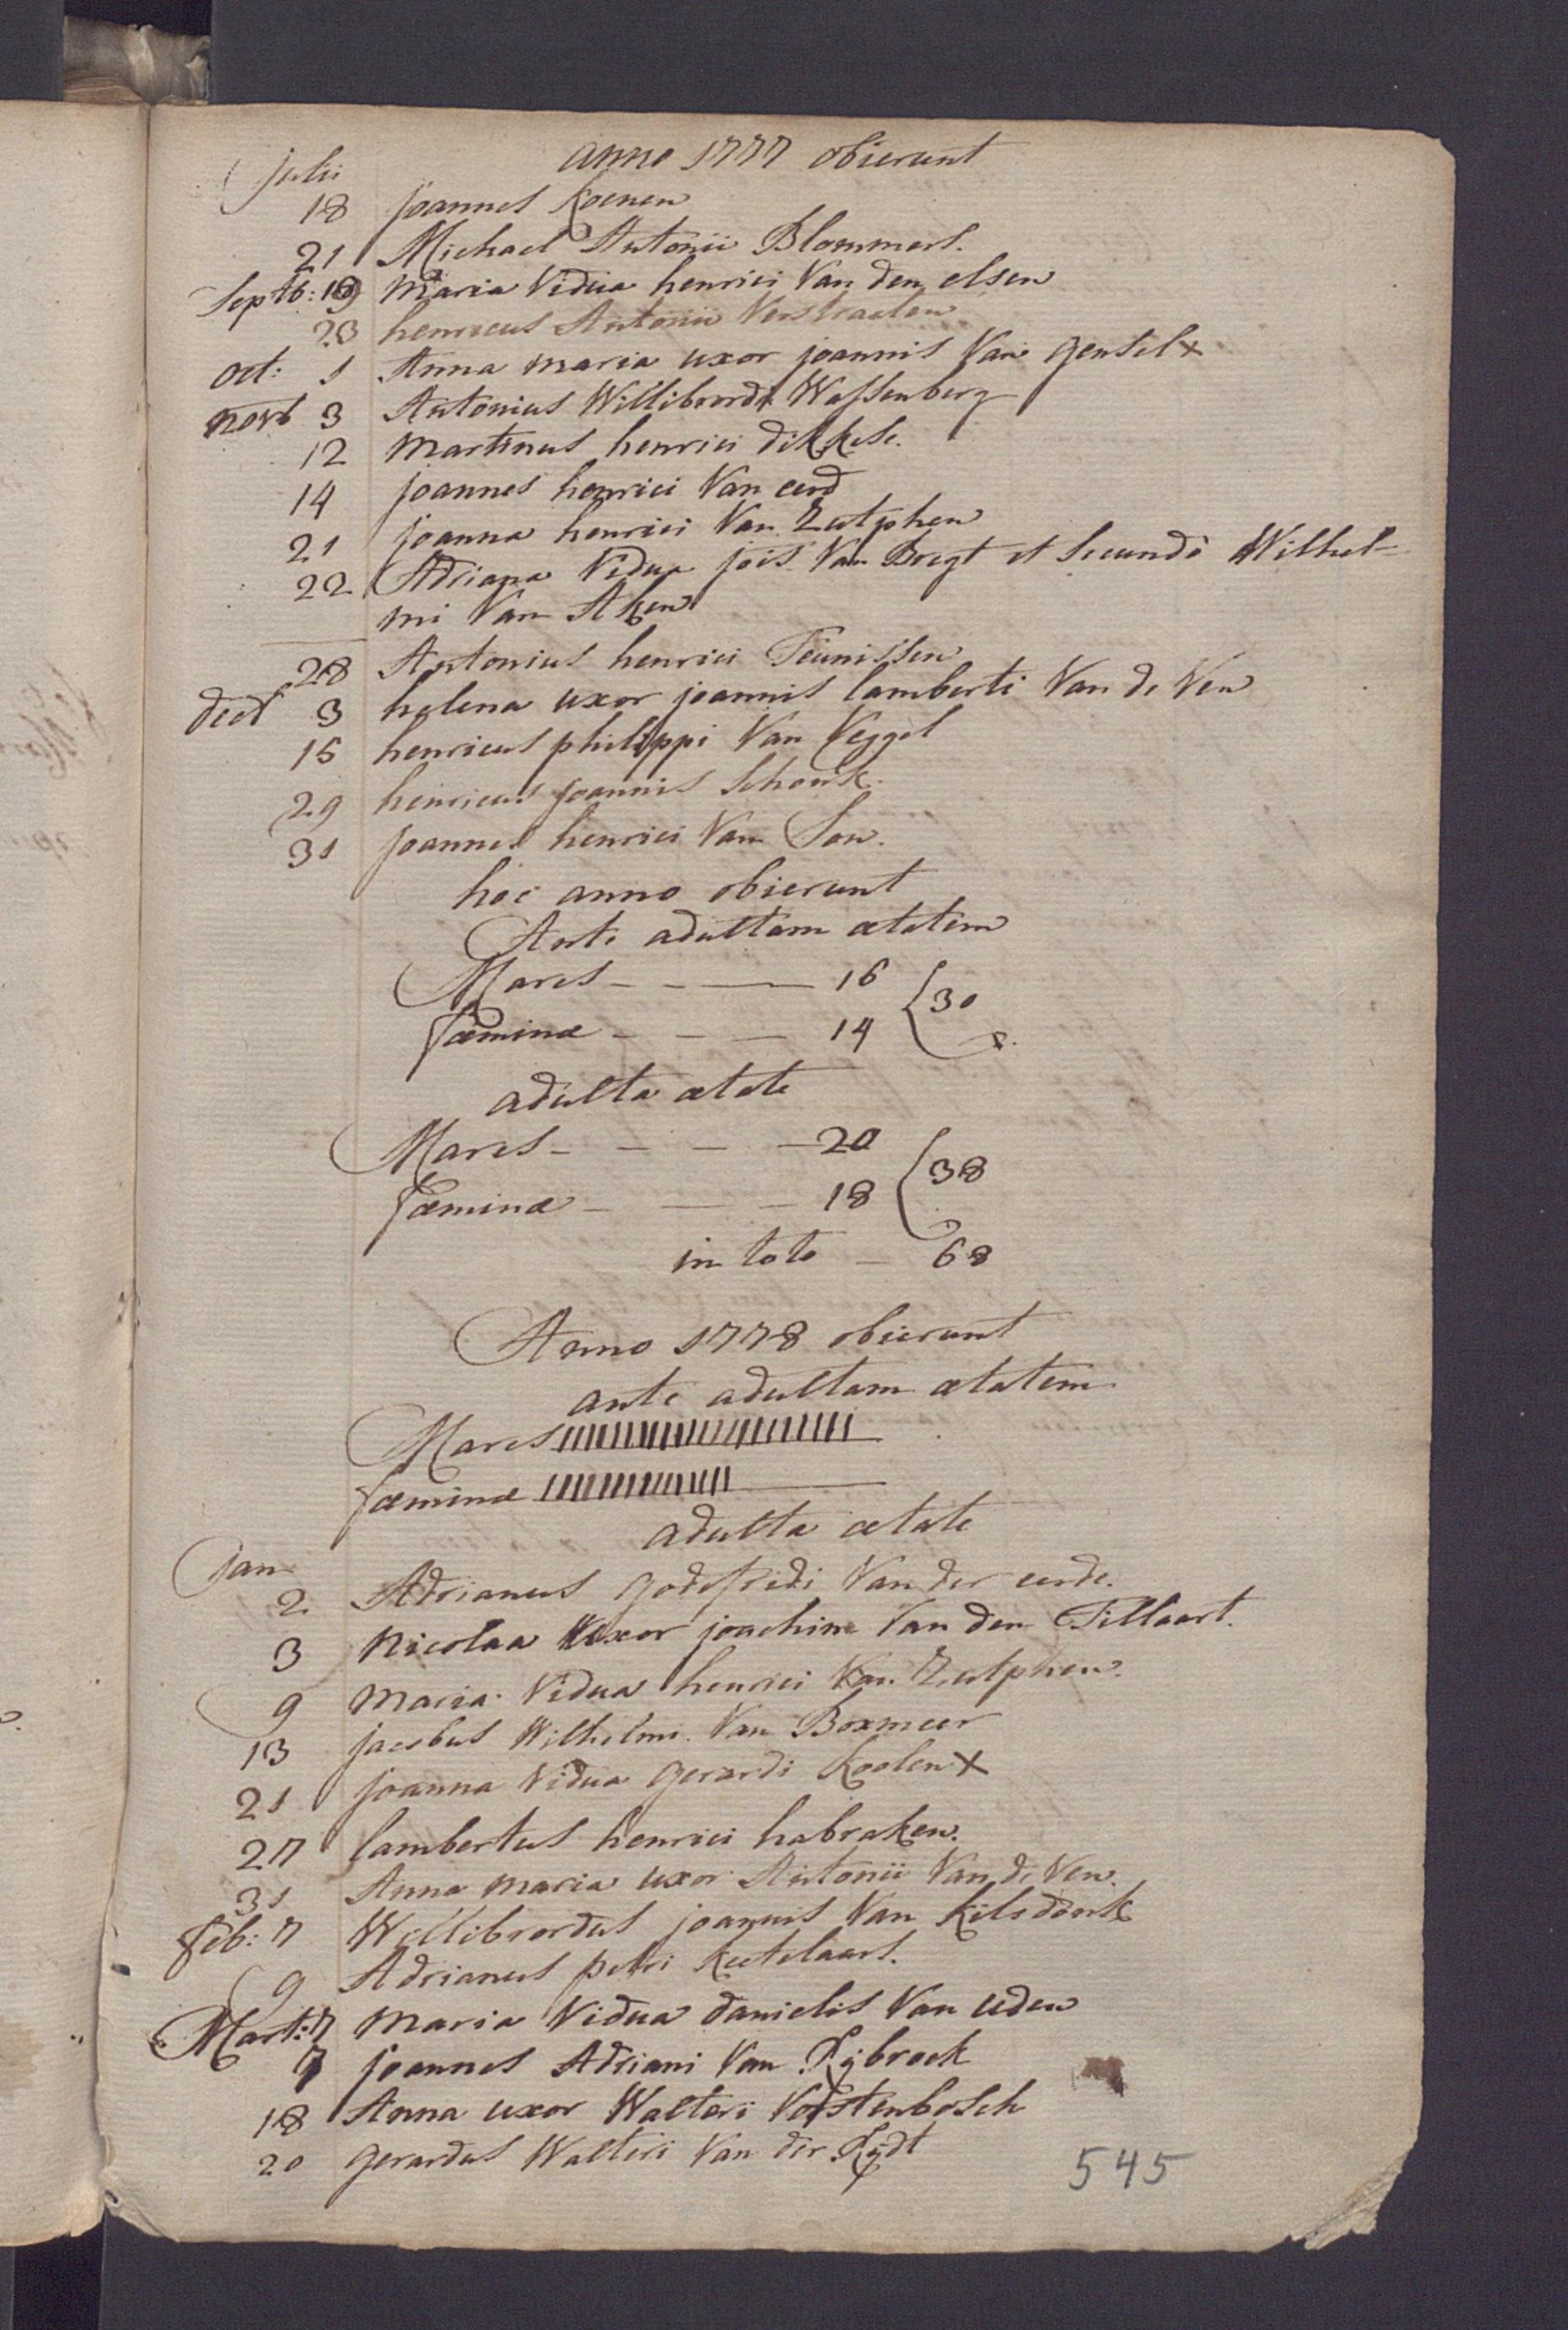 anno 1777 obierunt
julii
18 joannes Koenen
21 Michael Antonii Blommers.
Septb: 19 Maria Vidua henrici Van den elsen
23 henricus Antonii Verstraelen
oct: 1 Anna maria uxor joannis Van gentel x
novb 3 Antonius Willibrordi Wassenberg
12 Martinus henrici dikkese.
14 joannes henrici Van eerd
21 joanna henrici Van Zutphen
22 Adriana Vidua jois Van Bregt et secundò Wilhel-
mi Van Aken
28 Antonius henrici Teunissen
decb 3 helena uxor joannis lamberti Van de Ven
15 henricus philippi Van Veggel
29 henricus joannis Schonk.
31 joannes henrici Van Son.
hoc anno obierunt
Ante adultam ætatem
Mares 16
fæminæ 14 30
adulta ætate
Mares 20
fæminæ 18 38
in toto 68
Anno 1778 obierunt
ante adultam ætatem
Mares
fæminæ
adulta ætate
jan
2 Adrianus godefridi Van der eerde.
3 Nicolaa uxor joachim Van den Tillaart.
9 Maria Vidua henrici Van Zutphen.
13 jacobus Wilhelmi Van Boxmeer
21 joanna Vidua gerardi Koolen x
27 lambertus henrici habraken.
31 Anna maria uxor Antonii Van de Ven.
feb: 7 Willibrordus joannis Van Kilsdonk
9 Adrianus petri Ketelaars.
Mart: 7 Maria Vidua danielis Van uden
7 joannes Adriani Van Rybroek
18 Anna uxor Walteri Vorstenbosch
20 gerardus Walteri Van der Rydt
545